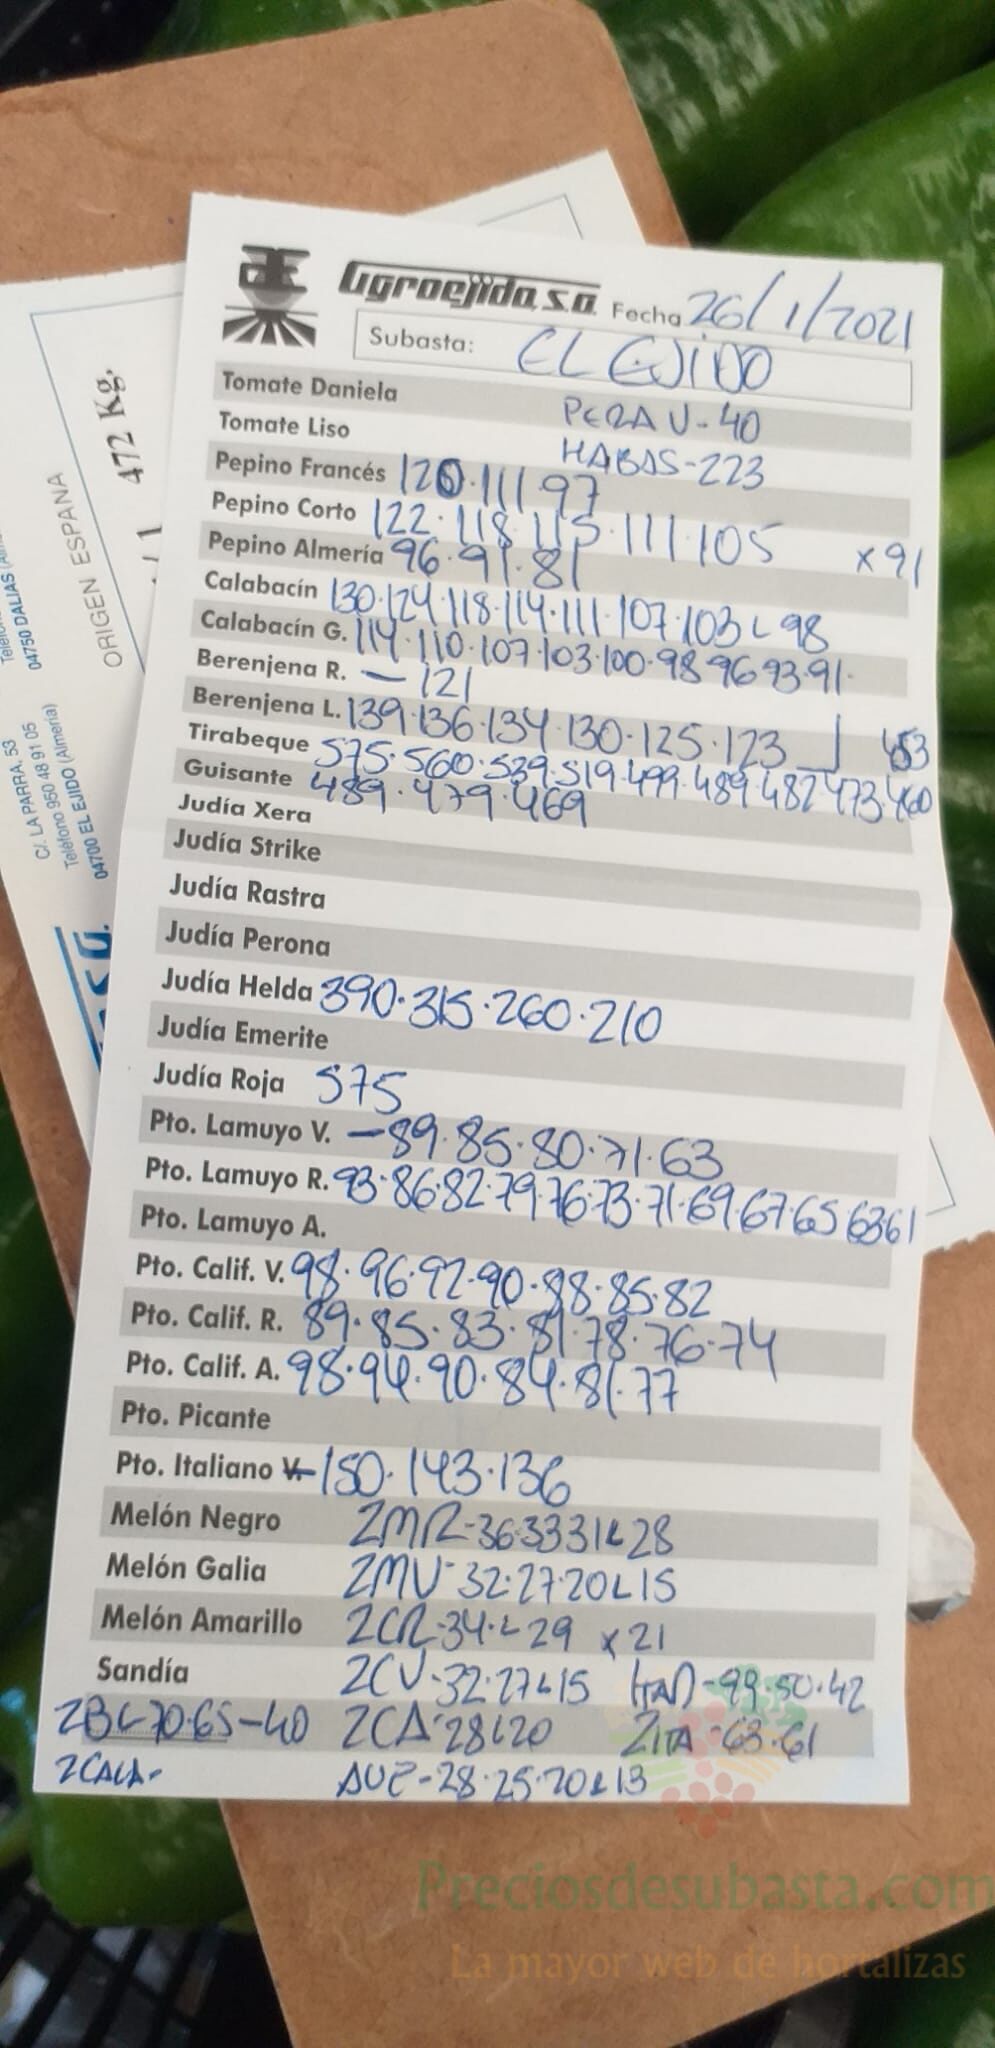 Agroejido, s.a. Fecha 26/1/2021
Subasta: EL EJIDO
Tomate Daniela PERA V-40
Tomate Liso HABAS-223
Pepino Francés 120.111.97
Pepino Corto 122.118.115.111.105 x91
Pepino Almería 96.91.81
Calabacín 130.124.118.114.111.107.103 L 98
Calabacín G. 114.110.107.103.100.98 96 93.91.
Berenjena R. — 121
Berenjena L. 139.136.134.130.125.123
Tirabeque 575.560.539.519.499.489.482 473.460 453
Guisante 489.479.469
Judía Xera
Judía Strike
Judía Rastra
Judía Perona
Judía Helda 390.315.260.210
Judía Emerite
Judía Roja 575
Pto. Lamuyo V. —89.85.80.71.63
Pto. Lamuyo R. 93.86.82.79.76.73.71.69.67.65 63 61
Pto. Lamuyo A.
Pto. Calif. V. 98.96.92.90.88.85.82
Pto. Calif. R. 89.85.83.81.78.76.74
Pto. Calif. A. 98.94.90.84.81.77
Pto. Picante
Pto. Italiano V. 150.143.136
Melón Negro 2MR-36 33 31 L 28
Melón Galia 2MV-32.27.20 L 15
Melón Amarillo 2CR-34.L 29 x 21
Sandía 2CV-32.27 L 15 -99.50.42
2B L 70.65-40 2CA-28 L 20 2ITA-63.61
2CALA- -28.25.20 L 13
472 Kg.
ORIGEN ESPAÑA
04750 DALIAS
C/. LA PARRA, 53
Teléfono 950 48 91 05
04700 EL EJIDO (Almería)
Preciosdesubasta.com
La mayor web de hortalizas